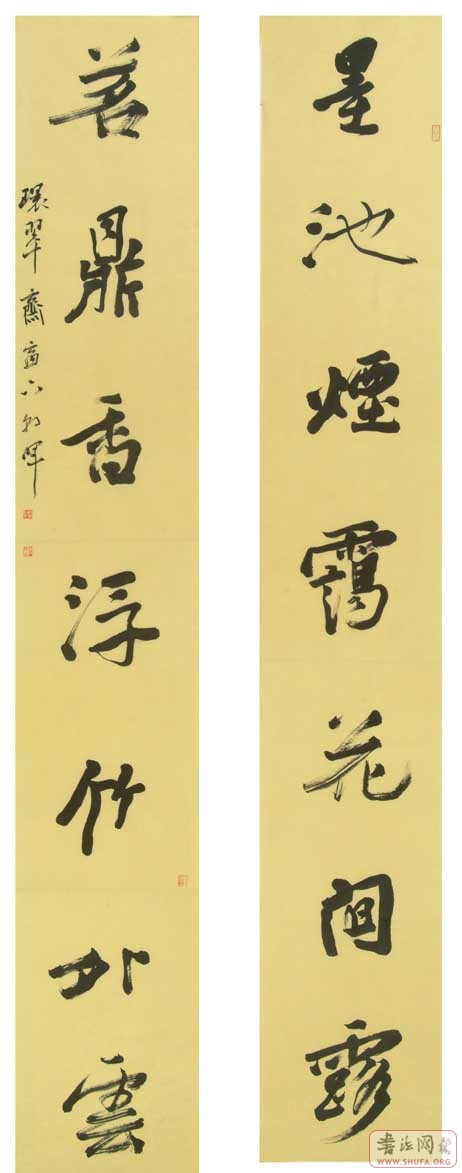 墨池煙靄花間露
茗鼎香浮竹外雲
環翠齋
書法网
WWW.SHUFA.ORG